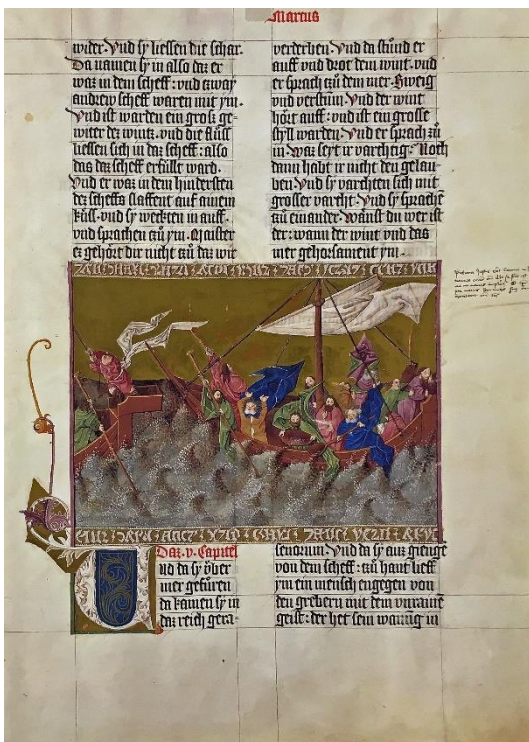 Marcus
wider. Vnd sy liessen die schar.
Da namen sy in also daz er
waz in dem scheff: vnd zway
andrew scheff waren mit ym.
Vnd ist warden ein grosz ge-
witer dez wintz. vnd die flüss
liessen sich in daz scheff: also
das daz scheff erfüllt ward.
Vnd er waz in dem hindersten
dez scheffs slaffent auf ainem
küss. vnd sy weckten in auff.
vnd sprachen czü ym. Maister
es gehört dir nicht zü daz wir
verderben. Vnd da stünd er
auff vnd drot dem wint. vnd
er sprach czü dem mer. Sweig
vnd verstüm. Vnd der wint
hört auff: vnd ist ein grosse
styll warden. Vnd er sprach zü
in. Waz seyt ir varchtig: Noch
dann habt ir nicht den gelau-
ben. Vnd sy varchten sich mit
grosser varcht. Vnd sy sprachen
czü einander. Wanst du wer ist
der: wann der wint vnd das
mer gehorsament ym.
Daz .v. Capitel
Vnd da sy über
mer gefüren
da kamen sy in
daz reich gera-
senorum. Vnd da sy auz gienge
von dem scheff: czü hant lieff
ym ein mensch engegen von
den grebern mit dem vnrainē
geist: der het sein wanung in